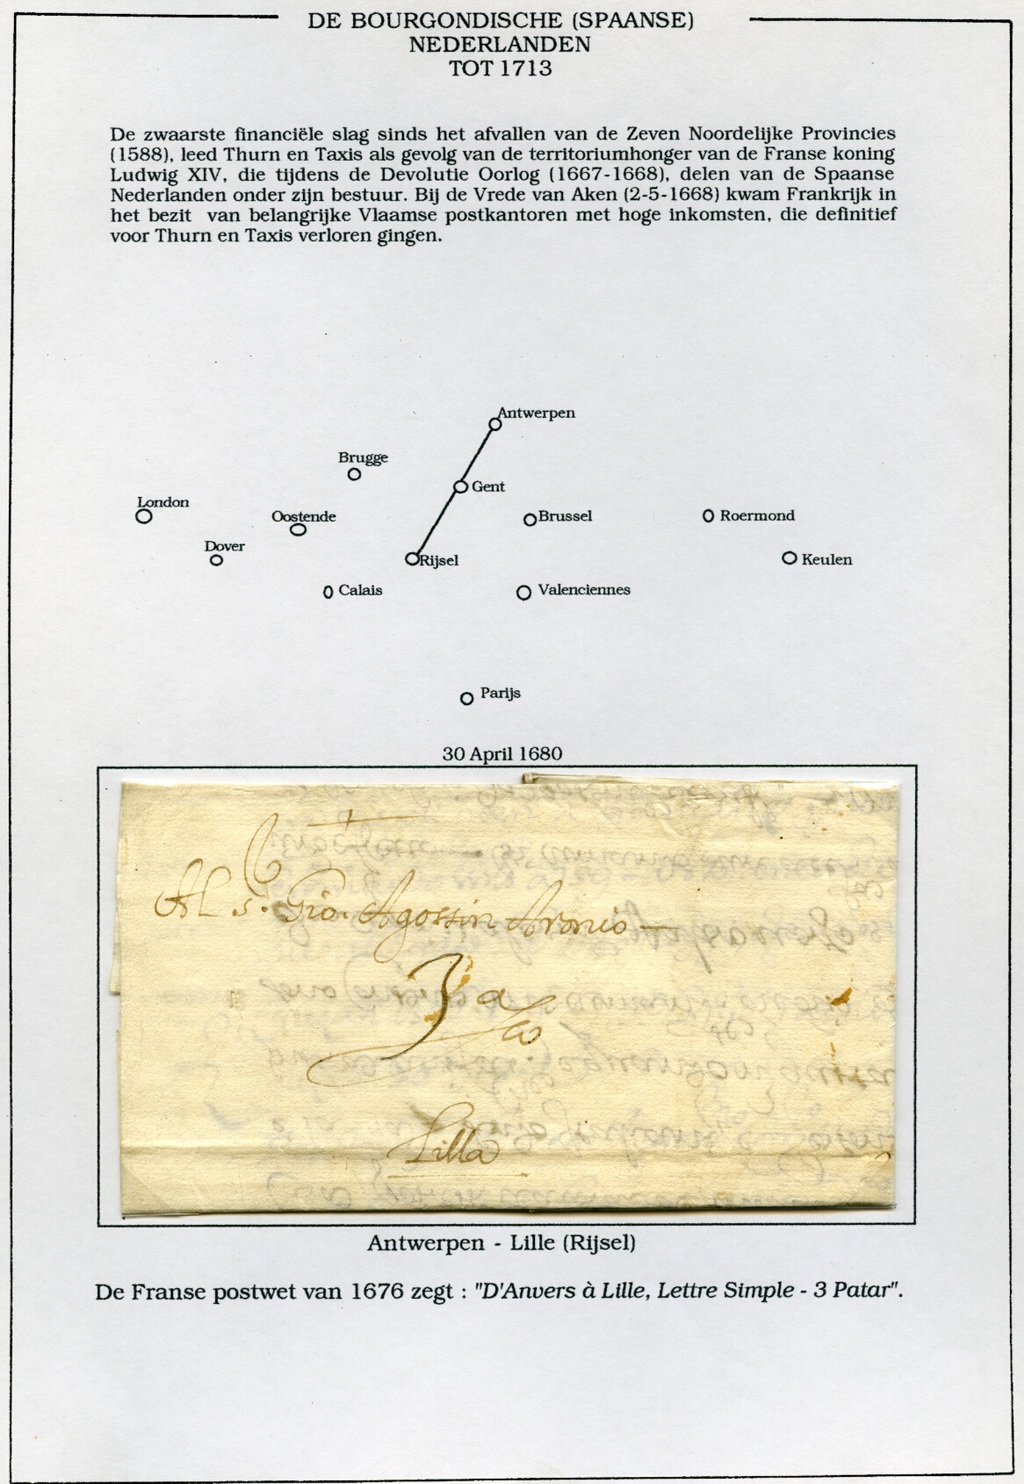 DE BOURGONDISCHE (SPAANSE)
NEDERLANDEN
TOT 1713
De zwaarste financiële slag sinds het afvallen van de Zeven Noordelijke Provincies
(1588), leed Thurn en Taxis als gevolg van de territoriumhonger van de Franse koning
Ludwig XIV, die tijdens de Devolutie Oorlog (1667-1668), delen van de Spaanse
Nederlanden onder zijn bestuur. Bij de Vrede van Aken (2-5-1668) kwam Frankrijk in
het bezit van belangrijke Vlaamse postkantoren met hoge inkomsten, die definitief
voor Thurn en Taxis verloren gingen.
Antwerpen
Brugge
Gent
London
Oostende
Brussel
Roermond
Dover
Rijsel
Keulen
Calais
Valenciennes
Parijs
30 April 1680
Al s.r Gio. Agostin
3
Lilla
Antwerpen - Lille (Rijsel)
De Franse postwet van 1676 zegt : "D'Anvers à Lille, Lettre Simple - 3 Patar".